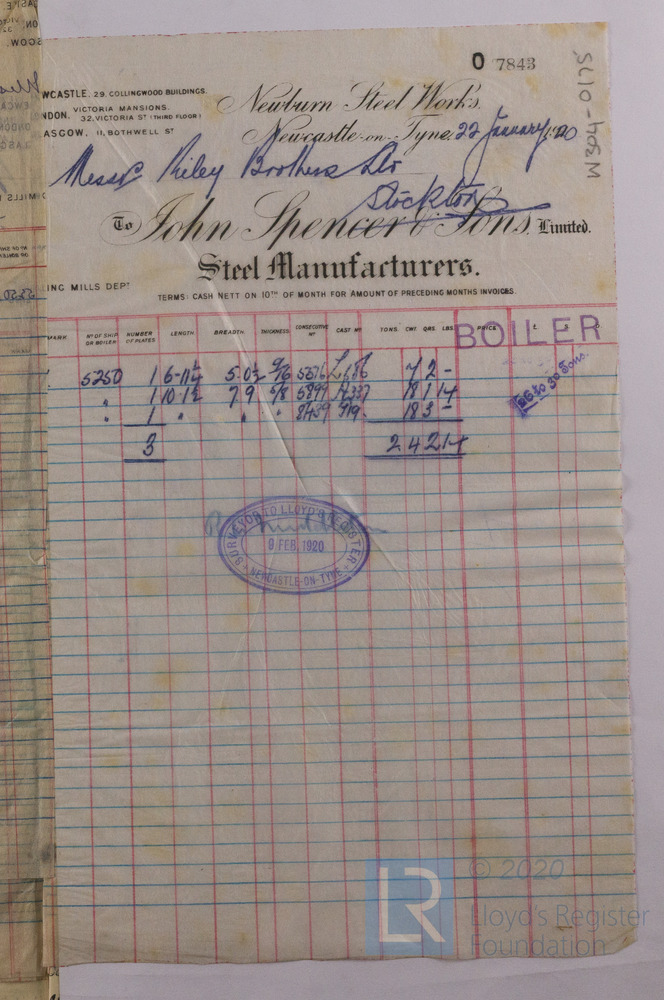 O 7843
WCASTLE. 29. COLLINGWOOD BUILDINGS.
VICTORIA MANSIONS.
NDON. 32, VICTORIA ST (THIRD FLOOR)
ASGOW. 11, BOTHWELL ST
Newburn Steel Works,
Newcastle-on-Tyne, 22 January 1920
Messrs Riley Brothers Ltd
Stockton
To John Spencer & Sons, Limited.
Steel Manufacturers.
ING MILLS DEPT
TERMS: CASH NETT ON 10TH OF MONTH FOR AMOUNT OF PRECEDING MONTHS INVOICES.
MARK Nº OF SHIP OR BOILER NUMBER OF PLATES LENGTH BREADTH THICKNESS CONSECUTIVE Nº CAST Nº TONS CWT QRS LBS PRICE £
BOILER
5250 1 6-11¼ 5.0½ 9/16 5576 7 2 -
" 1 10-1½ 7 9 5/8 5899 18 1 14
" 1 " " " 8439 919 18 3 -
3 2 4 2 14
26 to 30 Tons.
SURVEYOR TO LLOYD'S REGISTER
9 FEB 1920
NEWCASTLE-ON-TYNE
W304-0175
LR
© 2020
Lloyd's Register
Foundation